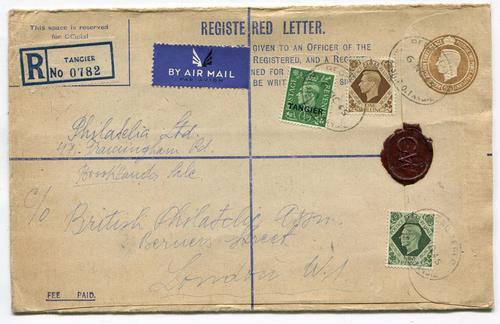 This space is reserved
for Official
REGISTERED LETTER.
GIVEN TO AN OFFICER OF THE
REGISTERED, AND A RECEIPT
NED FOR
BE WRIT
R
TANGIER
No 0782
BY AIR MAIL
PAR AVION
TANGIER
Philatelia Ltd.
Framingham Rd.
Brooklands Sale
c/o British Philatelic Assn.
Berners Street
London W.1
FEE PAID.